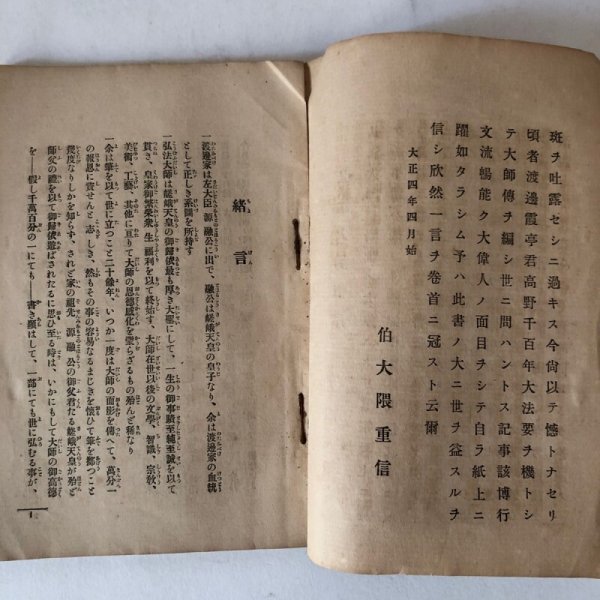 斑ヲ吐露セシニ過キス今尙以テ憾トナセリ
頃者渡邊霞亭君高野千百年大法要ヲ機トシ
テ大師傳ヲ編シ世ニ問ハントス記事該博行
文流暢能ク大偉人ノ面目ヲシテ自ラ紙上ニ
躍如タラシム予ハ此書ノ大ニ世ヲ益スルヲ
信シ欣然一言ヲ卷首ニ冠スト云爾
大正四年四月始
伯大隈重信
緖言
一渡邊家は左大臣源融公に出で、融公は嵯峨天皇の皇子なり、余は渡邊家の血統
として正しき系圖を所持す
一弘法大師は嵯峨天皇の御歸依最も厚き大德にして、一生の御事蹟至純至誠を以て
貫き、皇家御繁榮衆生福利を以て終始す、大師在世以後の文學、智識、宗敎、
美術、工藝、其他に亘りて大師の恩德感化を蒙らざるもの殆んど稀なり
一余は筆を以て世に立つこと二十餘年、いつか一度は大師の面影を傳へて、萬分一
の報恩に資せんと志しき、然もその事の容易なるまじきを懷ひて筆を擲つこと
幾度なりしかを知らず、されど家の祖先源融公の御父君たる嵯峨天皇が殆ど
師父の禮を以て御歸依遊ばされたるに思ひ至る時は、いかにもして大師の御高德
を――假し千萬百分の一にても――書き顯はして、一部にても世に弘むる事が、
1